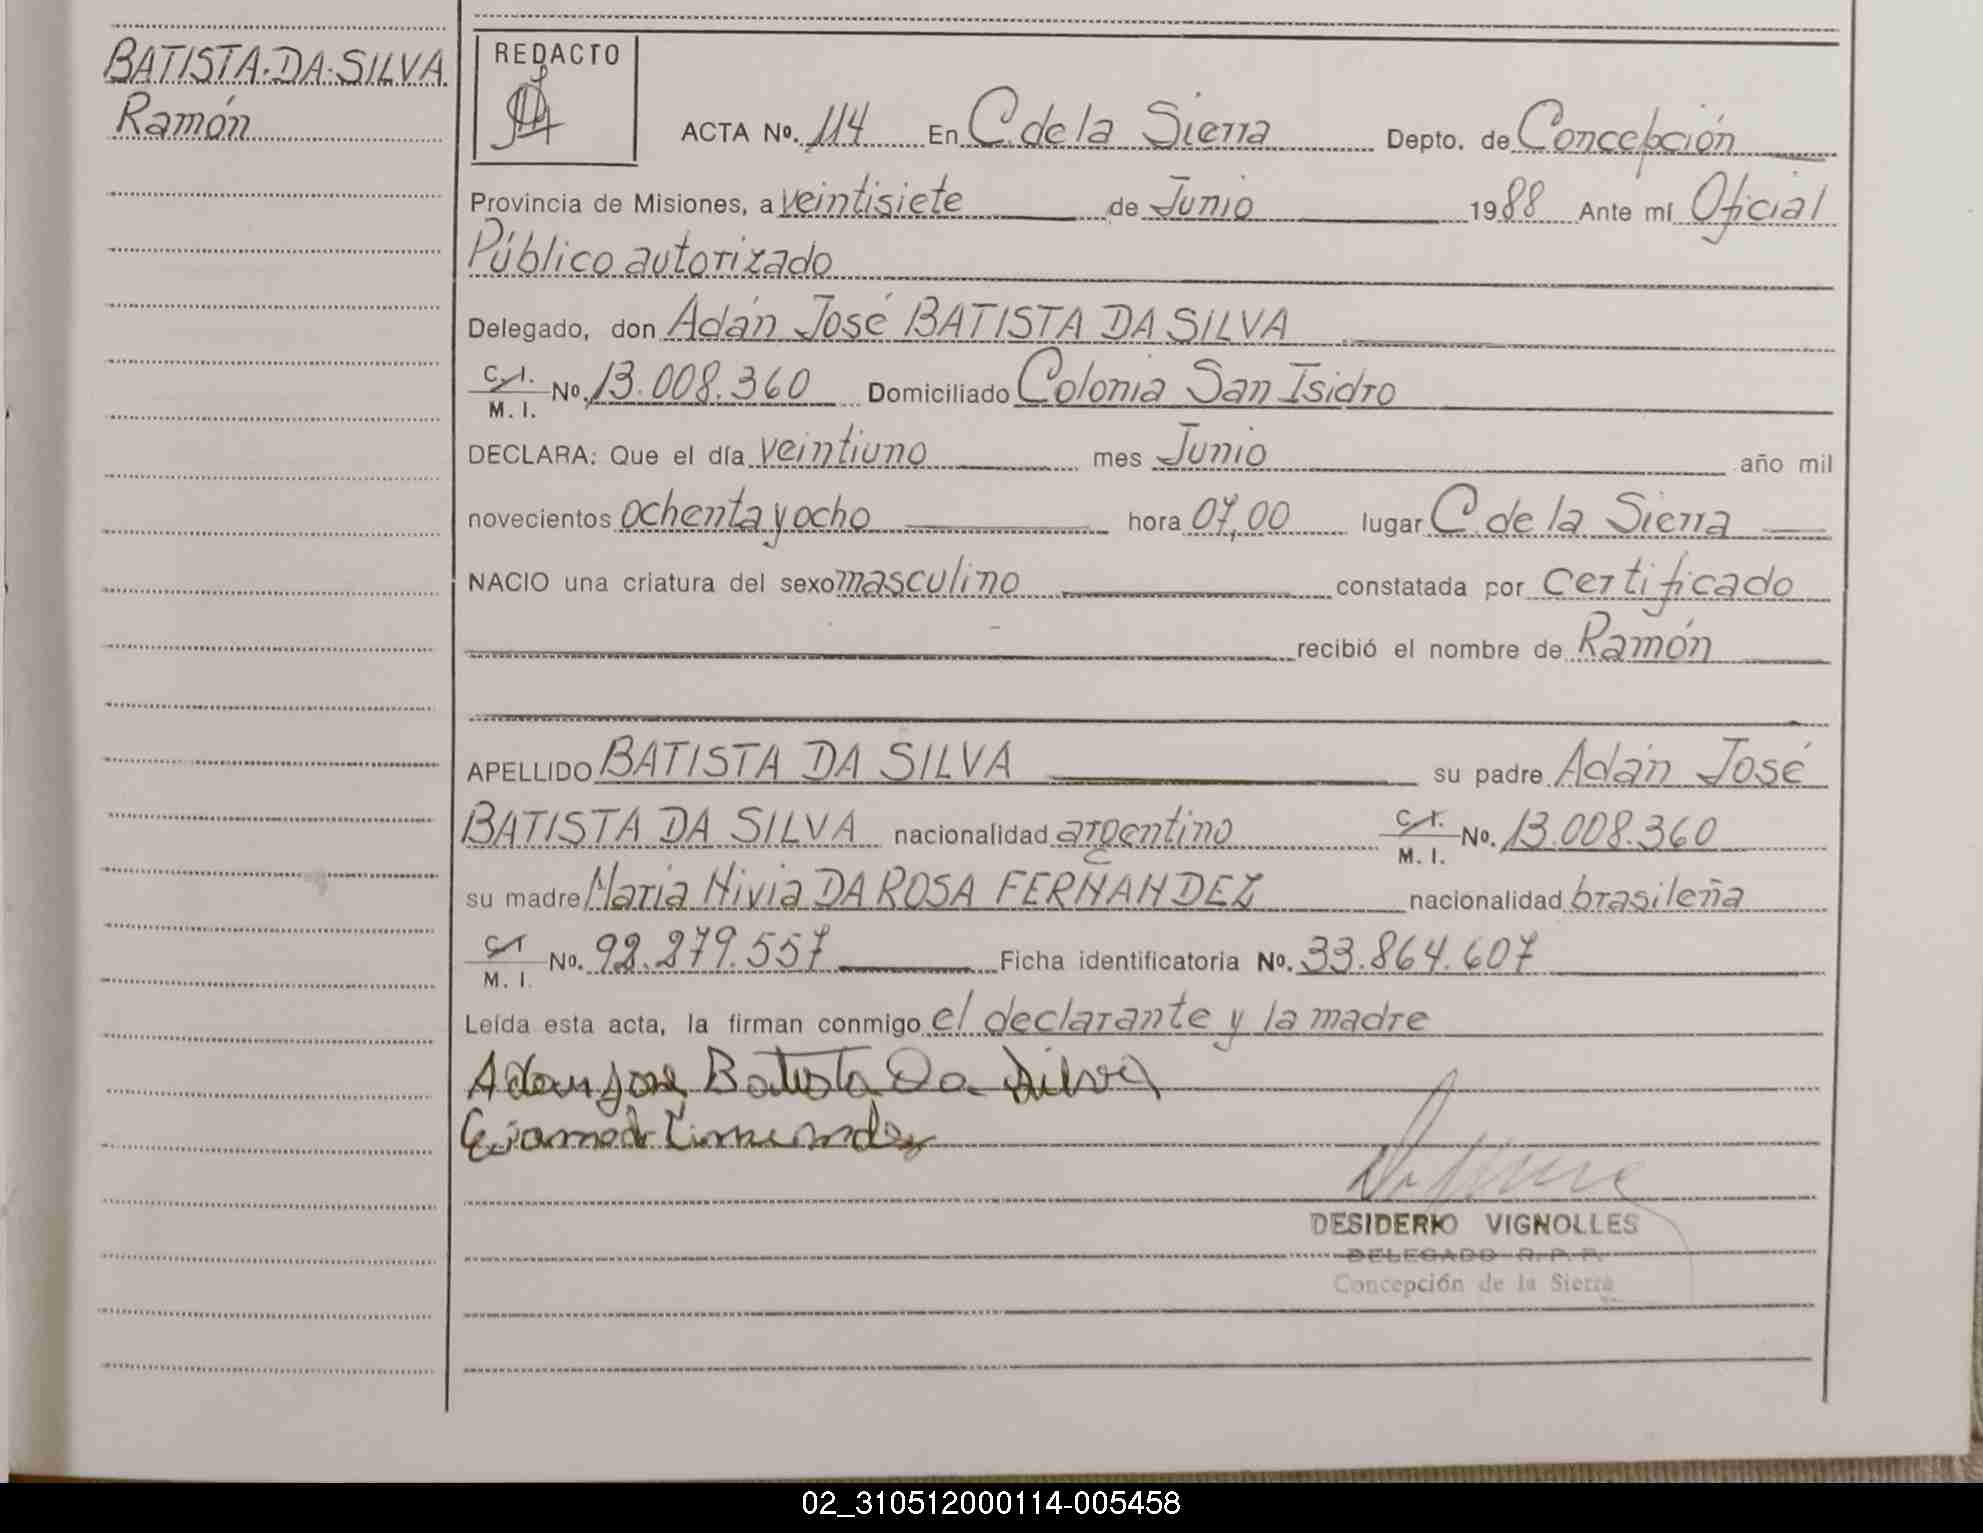 BATISTA DA SILVA
Ramón
REDACTO
ACTA Nº. 114 En C. de la Sierra Depto. de Concepción
Provincia de Misiones, a veintisiete de Junio 1988 Ante mí Oficial
Público autorizado
Delegado, don Adán José BATISTA DA SILVA
C. I.
M. I. Nº. 13.008.360 Domiciliado Colonia San Isidro
DECLARA: Que el día veintiuno mes Junio año mil
novecientos ochenta y ocho hora 07,00 lugar C. de la Sierra
NACIO una criatura del sexo masculino constatada por certificado
recibió el nombre de Ramón
APELLIDO BATISTA DA SILVA su padre Adán José
BATISTA DA SILVA nacionalidad argentino C. I.
M. I. Nº. 13.008.360
su madre Maria Nivia DA ROSA FERNANDEZ nacionalidad brasileña
C. I.
M. I. Nº. 92.279.557 Ficha identificatoria Nº. 33.864.607
Leída esta acta, la firman conmigo el declarante y la madre
Adan Jose Batista Da Silva
DESIDERIO VIGNOLLES
DELEGADO R. P. P.
Concepción de la Sierra
02_310512000114-005458